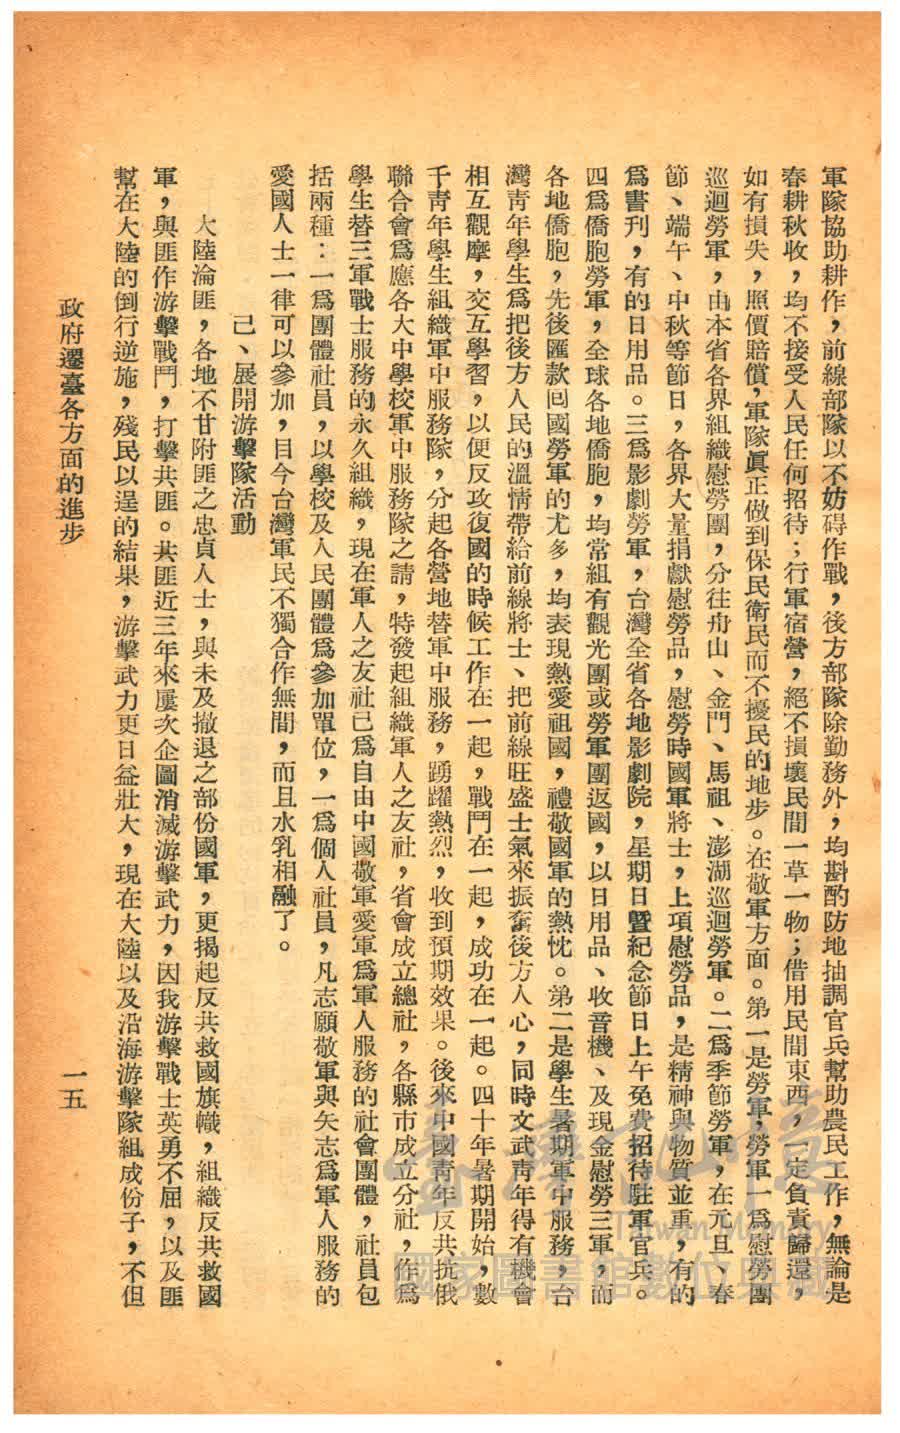 軍隊協助耕作，前線部隊以不妨碍作戰，後方部隊除勤務外，均斟酌防地抽調官兵幫助農民工作，無論是
春耕秋收，均不接受人民任何招待；行軍宿營，絕不損壞民間一草一物；借用民間東西，一定負責歸還，
如有損失，照價賠償，軍隊眞正做到保民衛民而不擾民的地步。在敬軍方面。第一是勞軍，勞軍一爲慰勞團
巡迴勞軍，由本省各界組織慰勞團，分往舟山、金門、馬祖、澎湖巡迴勞軍。二爲季節勞軍，在元旦、春
節、端午、中秋等節日，各界大量捐獻慰勞品，慰勞時國軍將士，上項慰勞品，是精神與物質並重，有的
爲書刊，有的日用品。三爲影劇勞軍，台灣全省各地影劇院，星期日暨紀念節日上午免費招待駐軍官兵。
四爲僑胞勞軍，全球各地僑胞，均常組有觀光團或勞軍團返國，以日用品、收音機、及現金慰勞三軍，而
各地僑胞，先後匯款囘國勞軍的尤多，均表現熱愛祖國，禮敬國軍的熱忱。第二是學生暑期軍中服務，台
灣靑年學生爲把後方人民的溫情帶給前線將士、把前線旺盛士氣來振奮後方人心，同時文武靑年得有機會
相互觀摩，交互學習，以便反攻復國的時候工作在一起，戰鬥在一起，成功在一起。四十年暑期開始，數
千靑年學生組織軍中服務隊，分起各營地替軍中服務，踴躍熱烈，收到預期效果。後來中國靑年反共抗俄
聯合會爲應各大中學校軍中服務隊之請，特發起組織軍人之友社，省會成立總社，各縣市成立分社，作爲
學生替三軍戰士服務的永久組織，現在軍人之友社已爲自由中國敬軍愛軍爲軍人服務的社會團體，社員包
括兩種：一爲團體社員，以學校及人民團體爲參加單位，一爲個人社員，凡志願敬軍與矢志爲軍人服務的
愛國人士一律可以參加，目今台灣軍民不獨合作無間，而且水乳相融了。
己、展開游擊隊活動
大陸淪匪，各地不甘附匪之忠貞人士，與未及撤退之部份國軍，更揭起反共救國旗幟，組織反共救國
軍，與匪作游擊戰鬥，打擊共匪。共匪近三年來屢次企圖消滅游擊武力，因我游擊戰士英勇不屈，以及匪
幫在大陸的倒行逆施，殘民以逞的結果，游擊武力更日益壯大，現在大陸以及沿海游擊隊組成份子，不但
政府遷臺各方面的進步
一五
Taiwan Memory
國家圖書館數位典藏